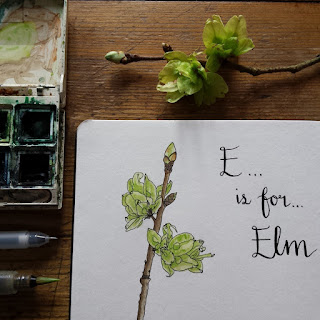 E ...
is for...
Elm